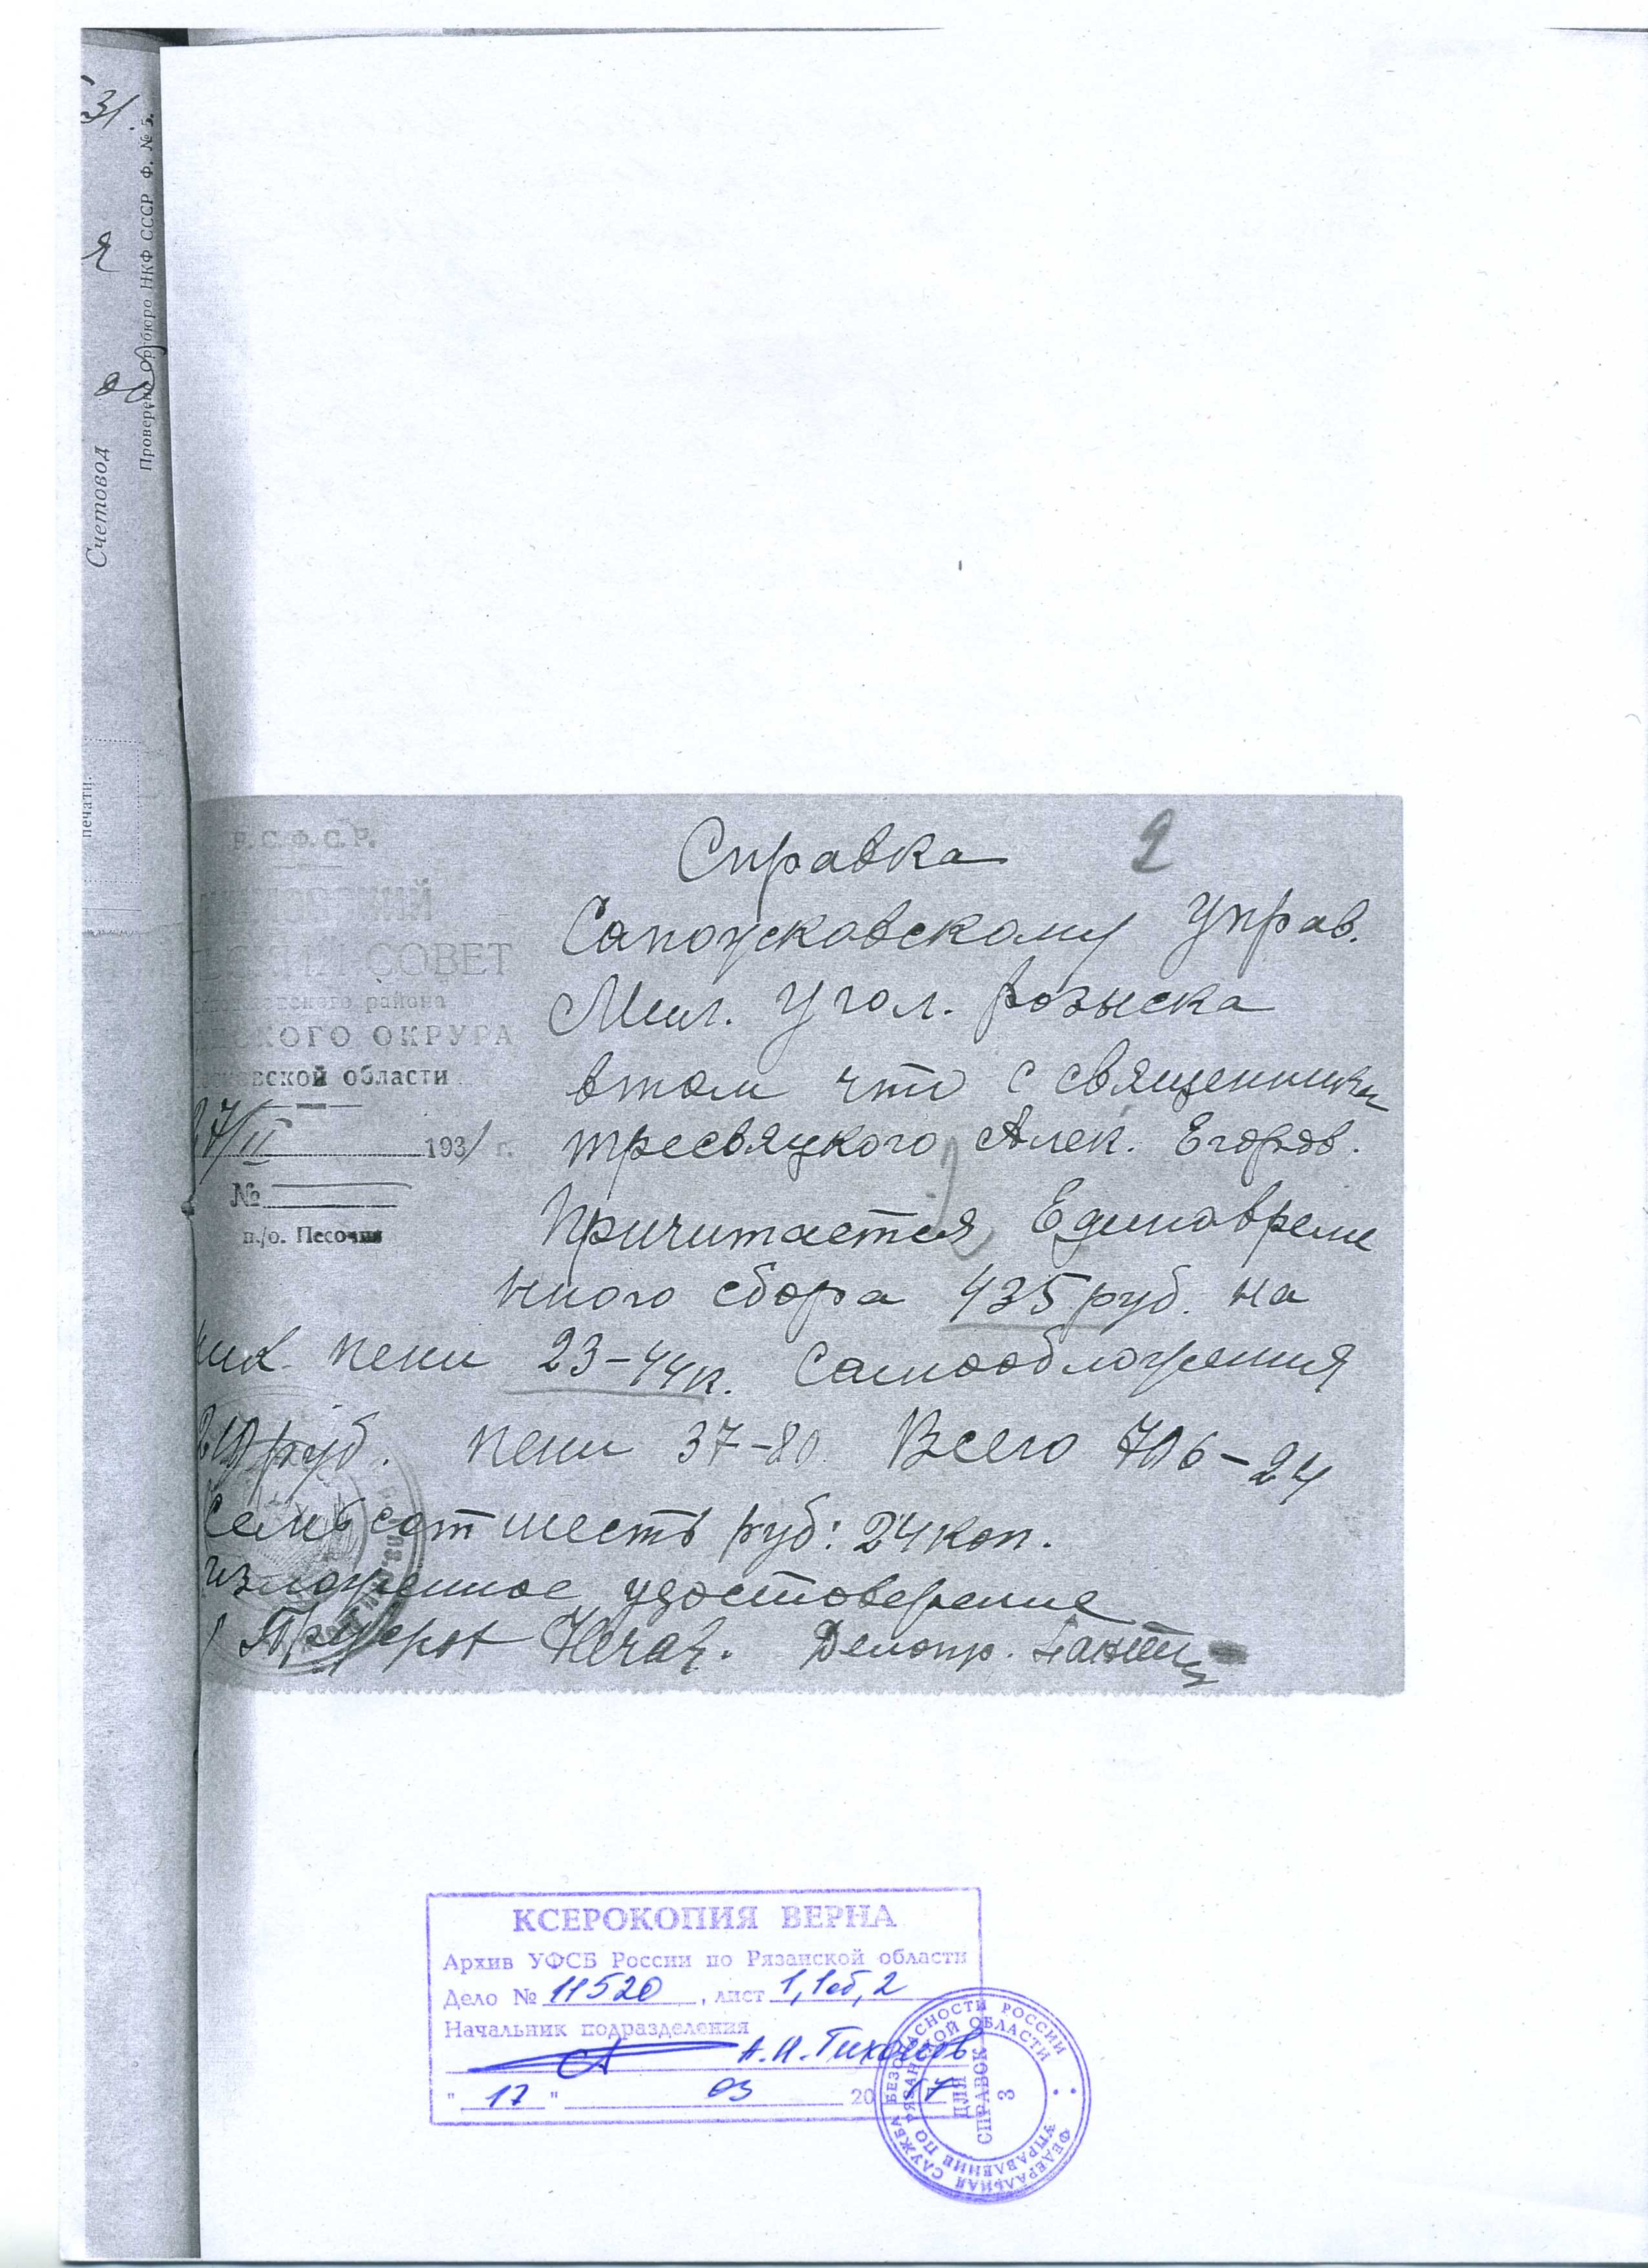 31.
Проверено Оргбюро НКФ СССР Ф. № 5.
Счетовод
печати.
Р.С.Ф.С.Р.
СОВЕТ
района
СКОГО ОКРУГА
овской области
27/II 1931 г.
№
п./о. Песочня
2
Справка
Сапожковскому Управ.
Мил. Угол. розыска
втом что с священника
тресвяцкого Алек. Егоров.
Причитается Единовреме
нного сбора 435 руб. на
них пени 23-44к. Самообложения
210 руб. пени 37-80 Всего 706-24
Семьсот шесть руб: 24 коп.
изложенное удостоверение
Делопр.
КСЕРОКОПИЯ ВЕРНА
Архив УФСБ России по Рязанской области
Дело № 11520, лист 1, 1об, 2
Начальник подразделения
А.И. Тихонов
" 17 " 03 2017
ФЕДЕРАЛЬНАЯ СЛУЖБА БЕЗОПАСНОСТИ РОССИИ
УПРАВЛЕНИЕ ПО РЯЗАНСКОЙ ОБЛАСТИ
ДЛЯ
СПРАВОК
3